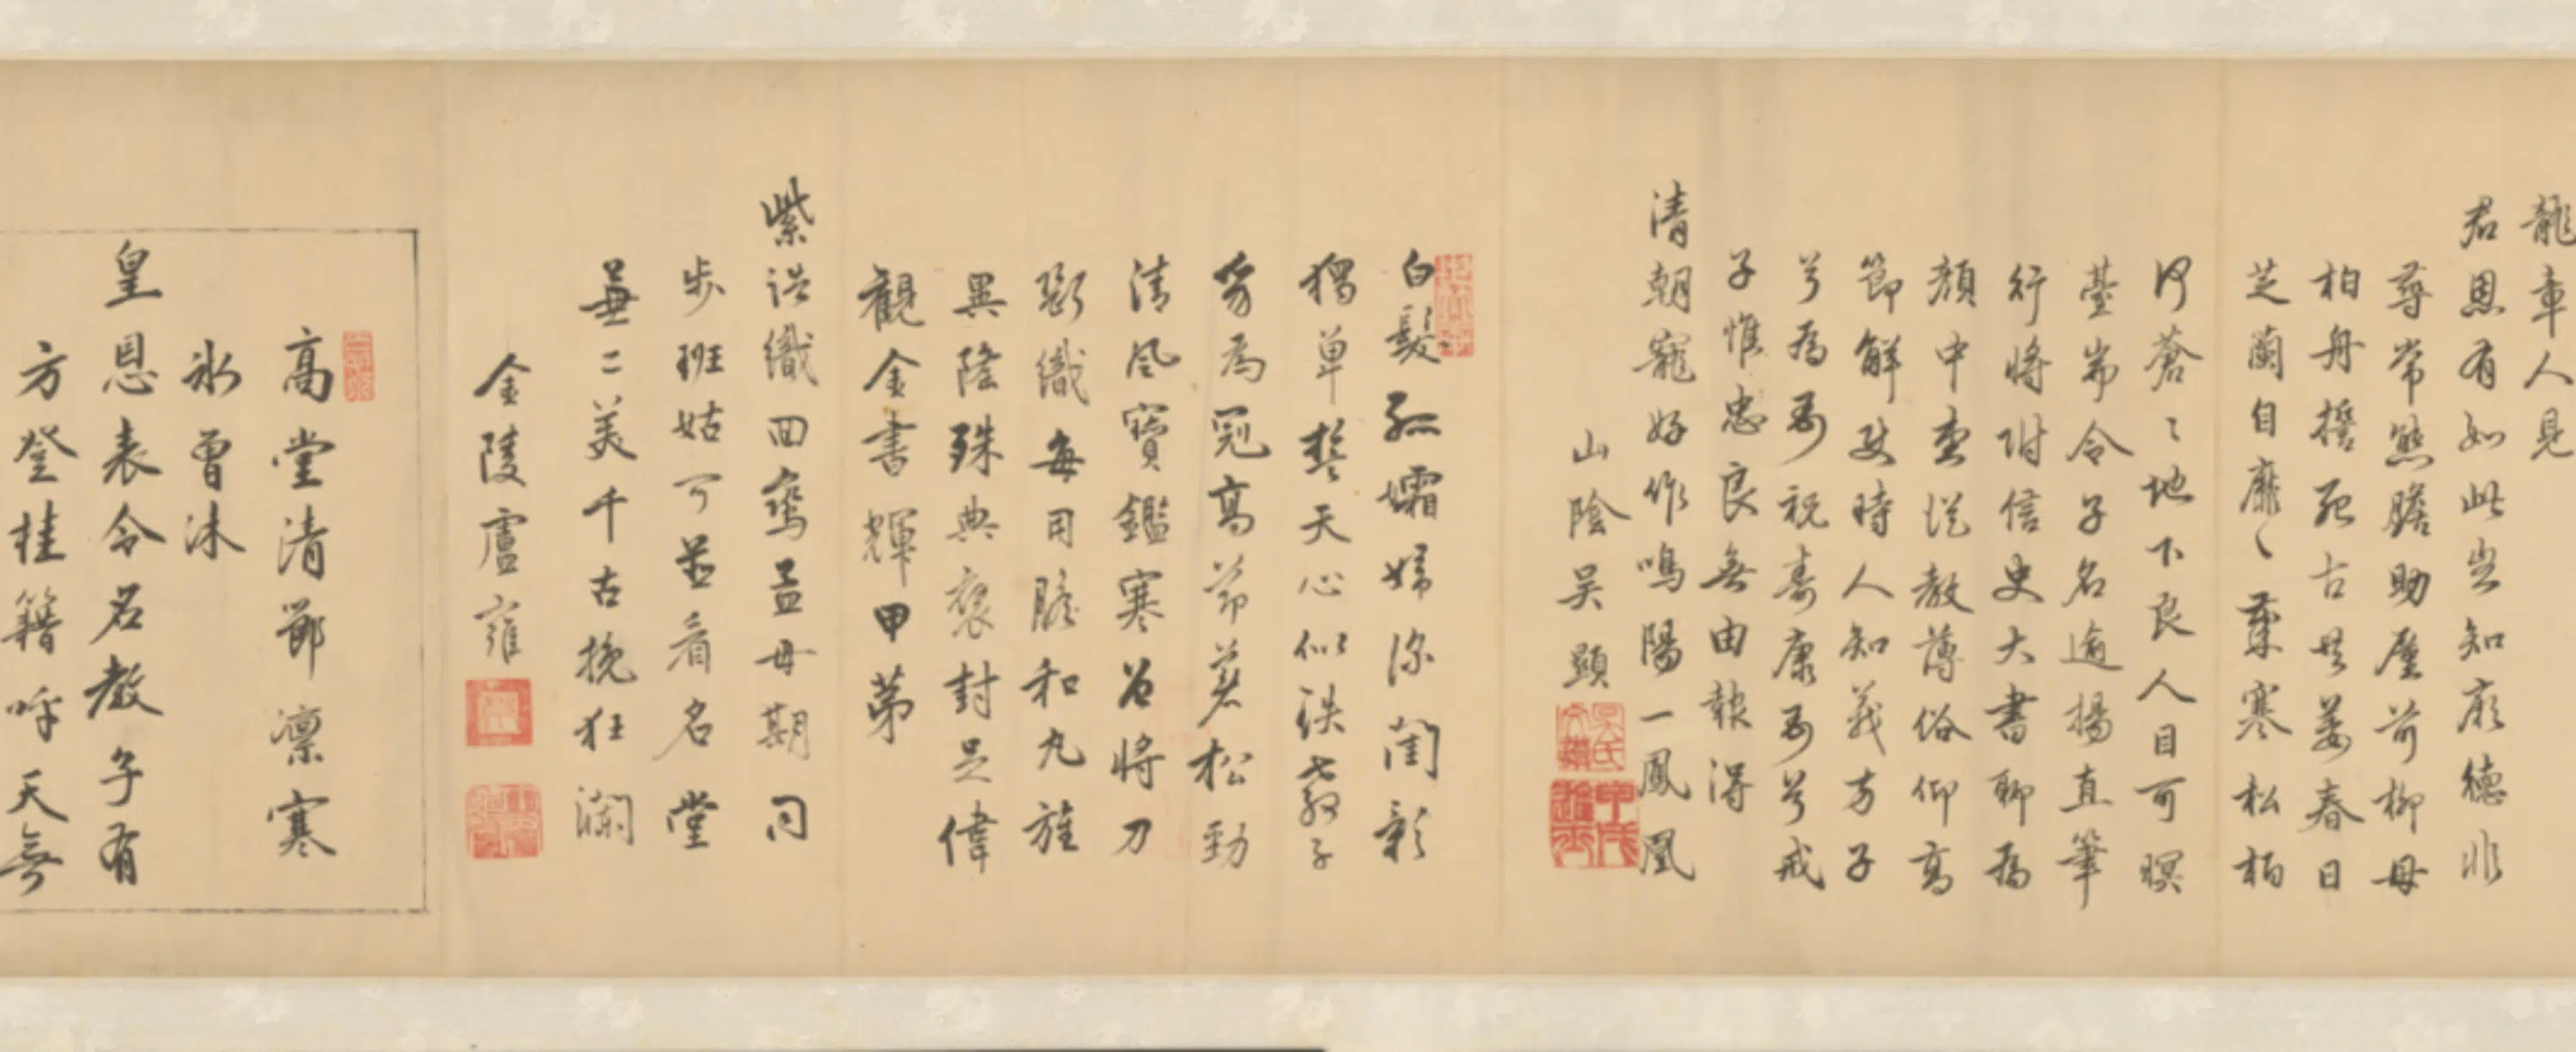 龍章人見
君恩有如此豈知厥德非
尋常熊膽助塵前柳母
柏舟擔死古共姜春日
芝蘭自靡〻葉寒松柏
何蒼〻地下良人目可瞑
臺端令子名逾揚直筆
行將附信史大書聊為
顏中壼從教薄俗仰高
節解使時人知義方子
兮為爾祝壽康爾兮戒
子惟忠良無由報得
清朝寵好作鳴陽一鳳凰
山陰吳顯
白髮孤孀婦深閨影
獨單誓天心似鐵教子
豸為冠高節蒼松勁
清風寶鑑寒呂將刀
斷織每用膽和丸旌
異隆殊典褒封足偉
觀金書輝甲第
紫誥織回鸞孟母期同
步班姑可並看名堂
兼二美千古挽狂瀾
金陵盧雍
高堂清節凜寒
冰曾沐
皇恩表令名教子有
方登桂籍呼天無